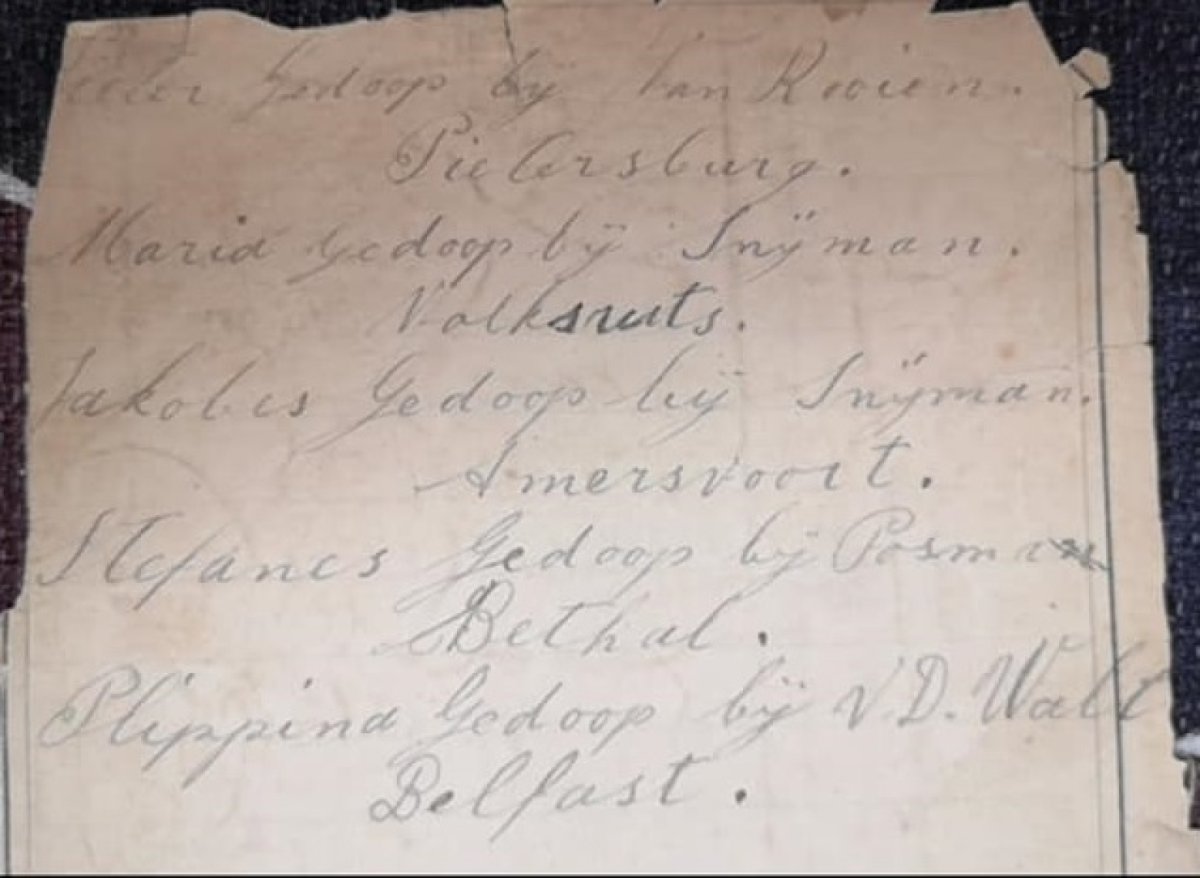 Gedoop bÿ Van Rooien.
Pietersburg.
Maria Gedoop bÿ Snÿman.
Volksruts.
Jakobus Gedoop bÿ Snÿman.
Amersvoort.
Stefanes Gedoop bÿ Posman
Bethal.
Plippina Gedoop bÿ V.D. Walt
Belfast.